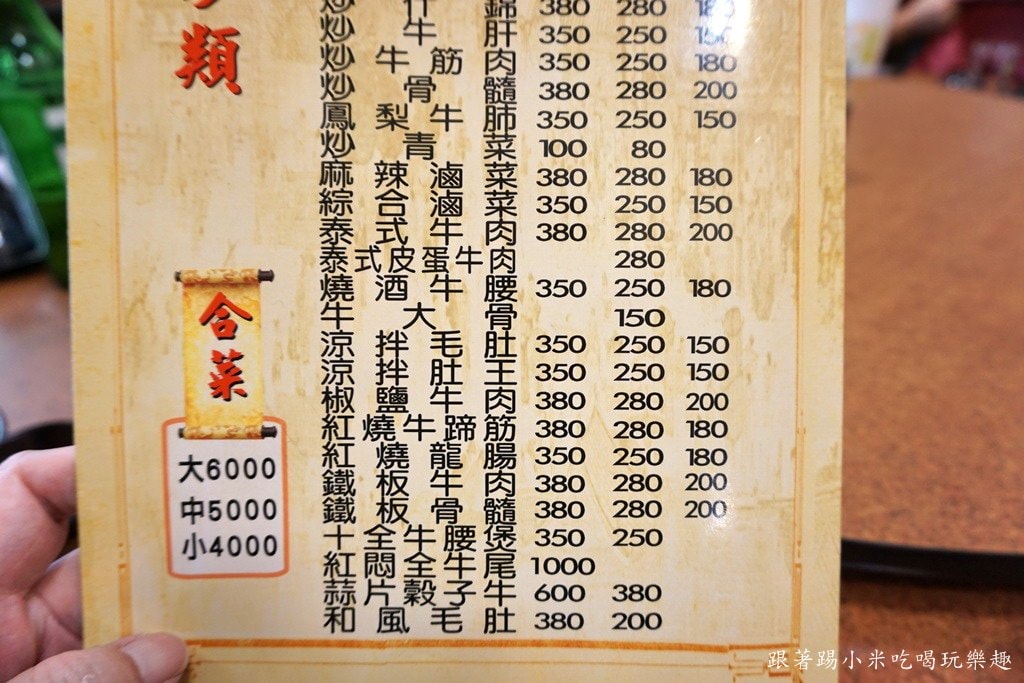 類
炒什錦 380 280 180
炒牛肝 350 250 150
炒牛筋肉 350 250 180
炒骨髓 380 280 200
鳳梨牛肺 350 250 150
炒青菜 100 80
麻辣滷菜 380 280 180
綜合滷菜 350 250 150
泰式牛肉 380 280 200
泰式皮蛋牛肉 280
燒酒牛腰 350 250 180
牛大骨 150
涼拌毛肚 350 250 150
涼拌肚王 350 250 150
椒鹽牛肉 380 280 200
紅燒牛蹄筋 380 280 180
紅燒龍腸 350 250 180
鐵板牛肉 380 280 200
鐵板骨髓 380 280 200
十全牛腰煲 350 250
紅悶全牛尾 1000
蒜片穀子牛 600 380
和風毛肚 380 200
合菜
大6000
中5000
小4000
跟著踢小米吃喝玩樂趣